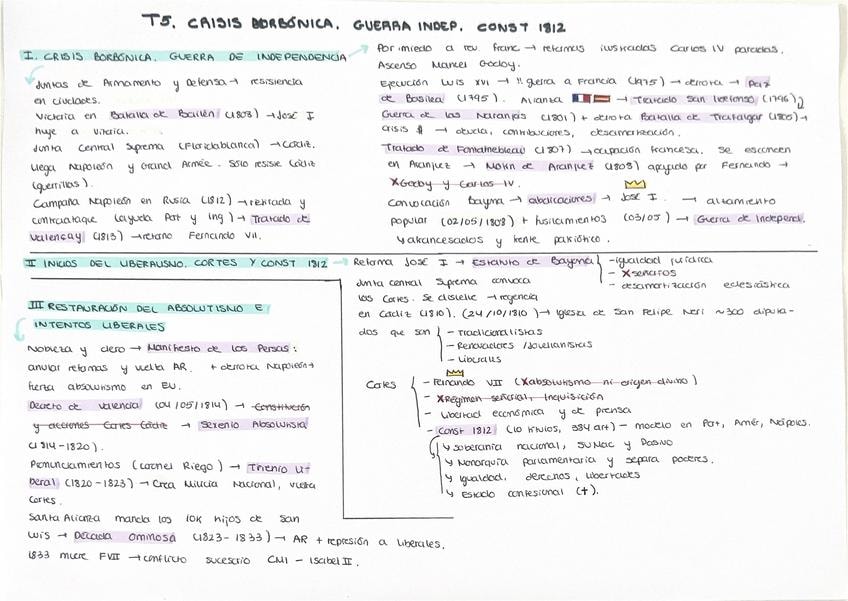 T5. CRISIS BORBÓNICA. GUERRA INDEP. CONST 1812
I. CRISIS BORBÓNICA. GUERRA DE INDEPENDENCIA →
Por miedo a rev. franc → reformas ilustradas Carlos IV paradas.
Ascenso Manuel Godoy.
Ejecución Luis XVI → !! guerra a Francia (1975) → derrota → Paz
de Basilea (1795). Alianza → Tratado San Ildefonso (1796)
Guerra de las Naranjas (1801) + derrota Batalla de Trafalgar (1805) →
crisis $ → deuda, contribuciones, desamortización.
Tratado de Fontainebleau (1807) → ocupación francesa. Se esconden
en Aranjuez → Motín de Aranjuez (1808) apoyado por Fernando →
X Godoy y Carlos IV.
Convocación Bayona → abdicaciones → José I. → altamiento
popular (02/05/1808) + fusilamientos (03/05) → Guerra de Independ.
↳ afrancesados y frente patriótico.
Juntas de Armamento y Defensa → resistencia
en ciudades.
Victoria en Batalla de Bailén (1808) → José I
huye a Vitoria.
Junta Central Suprema (Floridablanca) → Cádiz.
Llega Napoleón y Grand Armée. Sólo resiste Cádiz
(guerrillas).
Campaña Napoleón en Rusia (1812) → retirada y
contraataque (ayuda Port y Ing) → Tratado de
Valençay (1813) → retorno Fernando VII.
II INICIOS DEL LIBERALISMO. CORTES Y CONST 1812 →
Reforma José I → Estatuto de Bayona
- igualdad jurídica
- X señoríos
- desamortización eclesiástica
Junta Central Suprema convoca
las Cortes. Se disuelve → regencia
en Cádiz (1810). (24/10/1810) → Iglesia de San Felipe Neri ~300 diputa-
dos que son
- Tradicionalistas
- Renovadores / Jovellanistas
- Liberales
Cortes
- Fernando VII (X absolutismo ni origen divino)
- X Régimen señorial, Inquisición
- Libertad económica y de prensa
- Const 1812 (10 títulos, 384 art) - modelo en Port, Amér, Nápoles.
↳ Soberanía nacional, SUMac y Pasivo
↳ Monarquía parlamentaria y separa poderes.
↳ Igualdad, derechos, libertades
↳ Estado confesional (+).
III RESTAURACIÓN DEL ABSOLUTISMO E
INTENTOS LIBERALES
Nobleza y clero → Manifiesto de los Persas:
anular reformas y vuelta AR. + derrota Napoleón →
fuerza absolutismo en EU.
Decreto de Valencia (04/05/1814) → Constitución
y acciones Cortes Cádiz → Sexenio Absolutista
(1814-1820).
Pronunciamientos (Coronel Riego) → Trienio Li-
beral (1820-1823) → Crea Milicia Nacional, vuelta
Cortes.
Santa Alianza manda los 10K hijos de San
Luis → Década Ominosa (1823-1833) → AR + represión a liberales.
1833 muere FVII → conflicto sucesorio CMI - Isabel II.